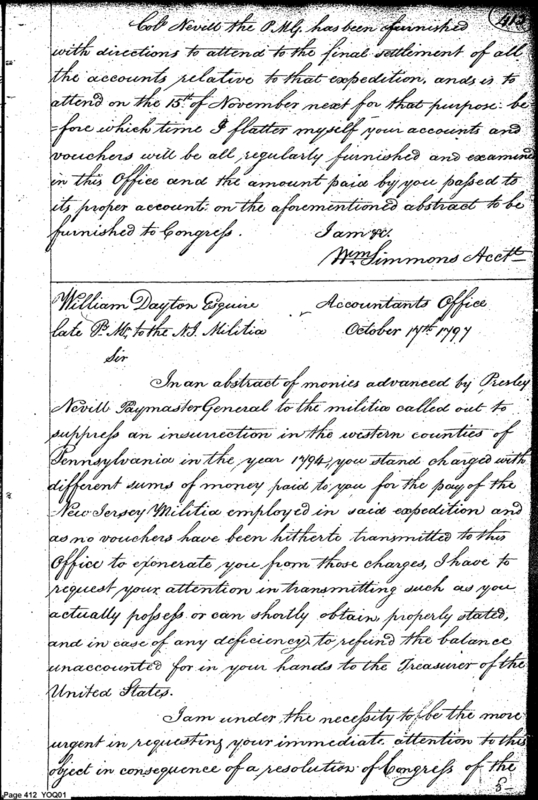 412
Colo Nevill the P.M.G. has been furnished
with directions to attend to the final settlement of all
the accounts relative to that expedition, and is to
attend on the 15th of November next for that purpose: be
=fore which time I flatter myself your accounts and
vouchers will be all regularly furnished and examined
in this Office and the amount paid by you passed to
its proper account: on the aforementioned abstract to be
furnished to Congress.
I am &c.
Wm Simmons Acctt
William Dayton Esquire
Accountants Office
late P. Mr. to the N.J. Militia
October 17th 1797
Sir
In an abstract of monies advanced by Presley
Nevill Paymaster General to the militia called out to
suppress an insurrection in the western counties of
Pennsylvania in the year 1794, you stand charged with
different sums of money paid to you for the pay of the
New Jersey Militia employed in said expedition and
as no vouchers have been hitherto transmitted to this
Office to exonerate you from those charges, I have to
request your attention in transmitting such as you
actually possess or can shortly obtain, properly stated,
and in case of any deficiency to refund the balance
unaccounted for in your hands to the Treasurer of the
United States.
I am under the necessity to be the more
urgent in requesting your immediate attention to this
object in consequence of a resolution of Congress of the
8-
Page 412 YOQ01